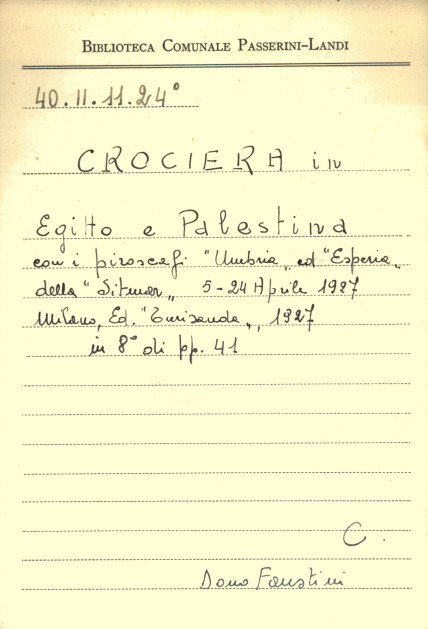 BIBLIOTECA COMUNALE PASSERINI-LANDI
40.II.11.24°
CROCIERA in
Egitto e Palestina
con i piroscafi "Umbria„ ed "Esperia„
della "Sitmar„ 5-24 Aprile 1927
Milano, Ed. "Turisanda„, 1927
in 8° di pp. 41
C.
Dono Faustini